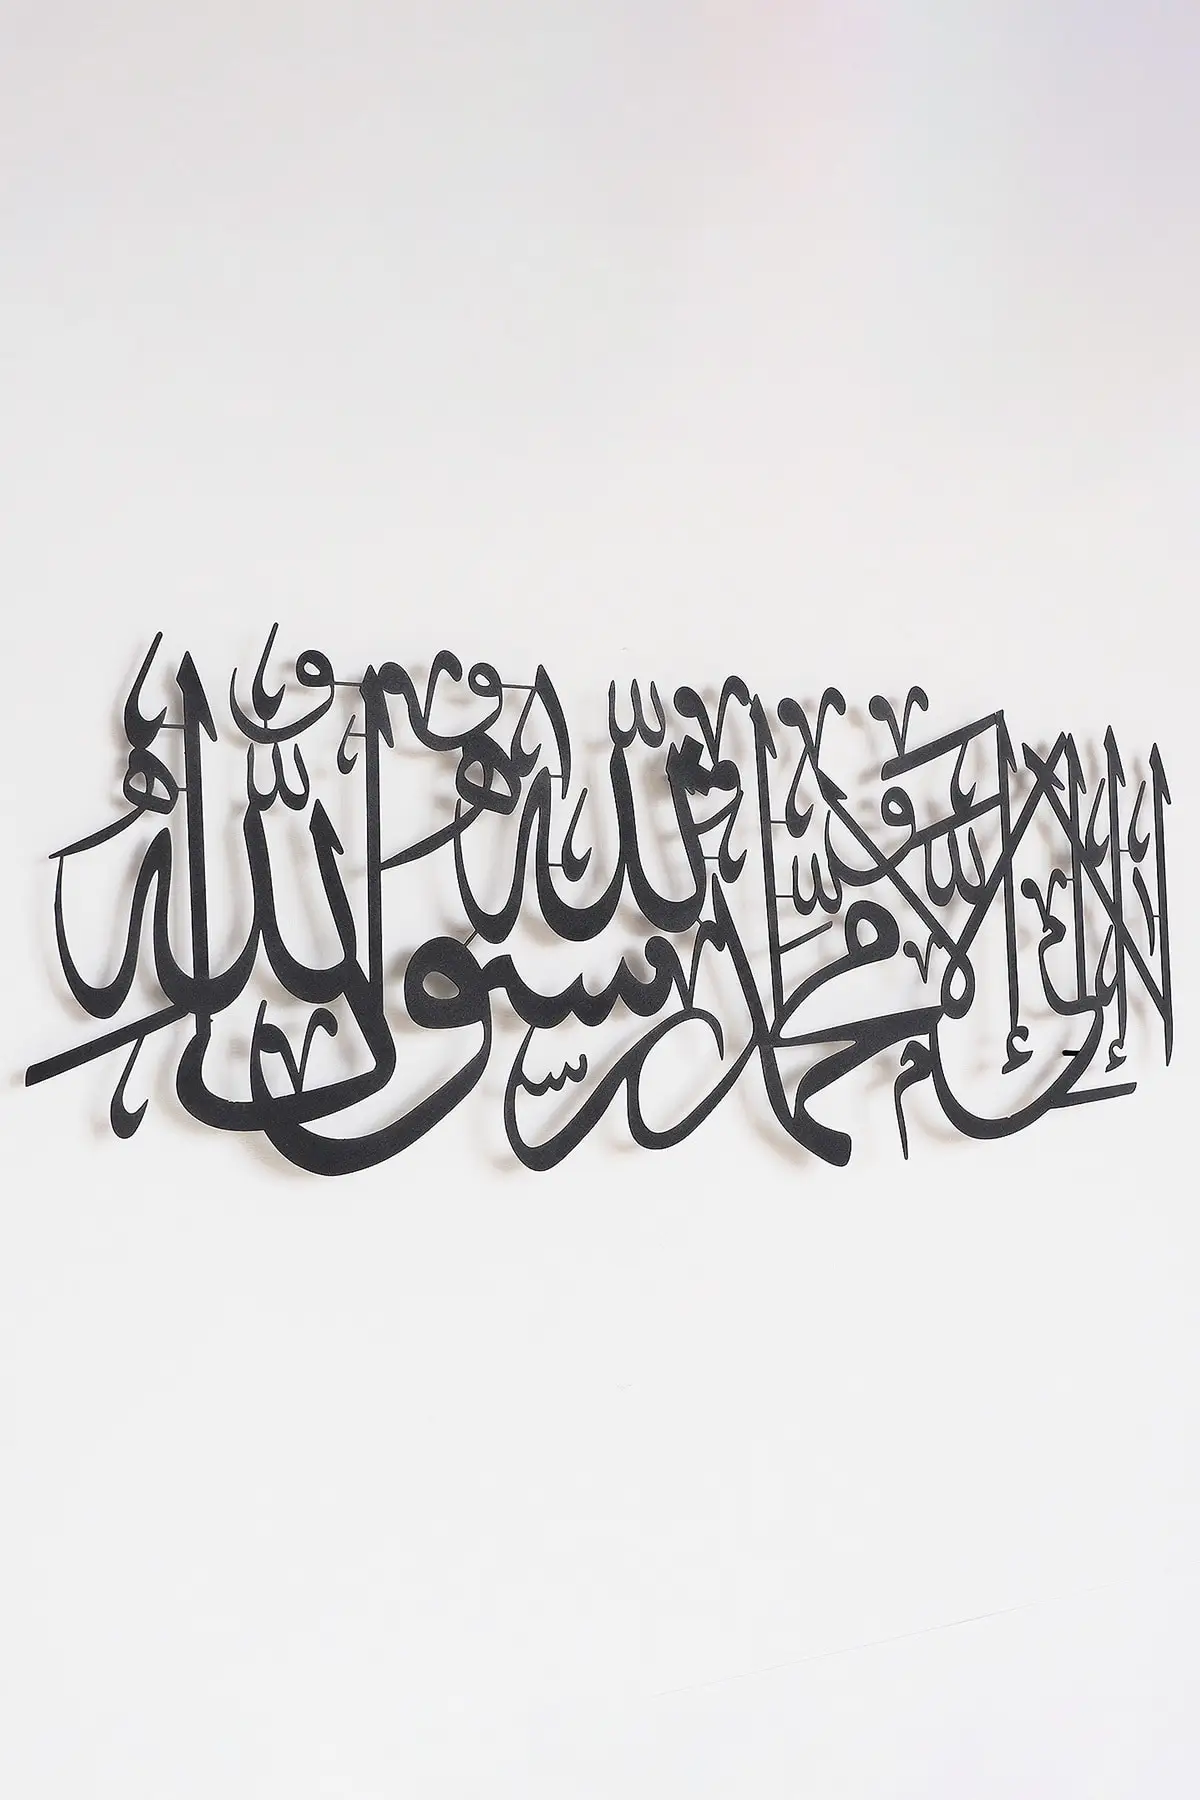 لَا إِلَٰهَ إِلَّا اللّٰهُ مُحَمَّدٌ رَسُولُ اللّٰهِ